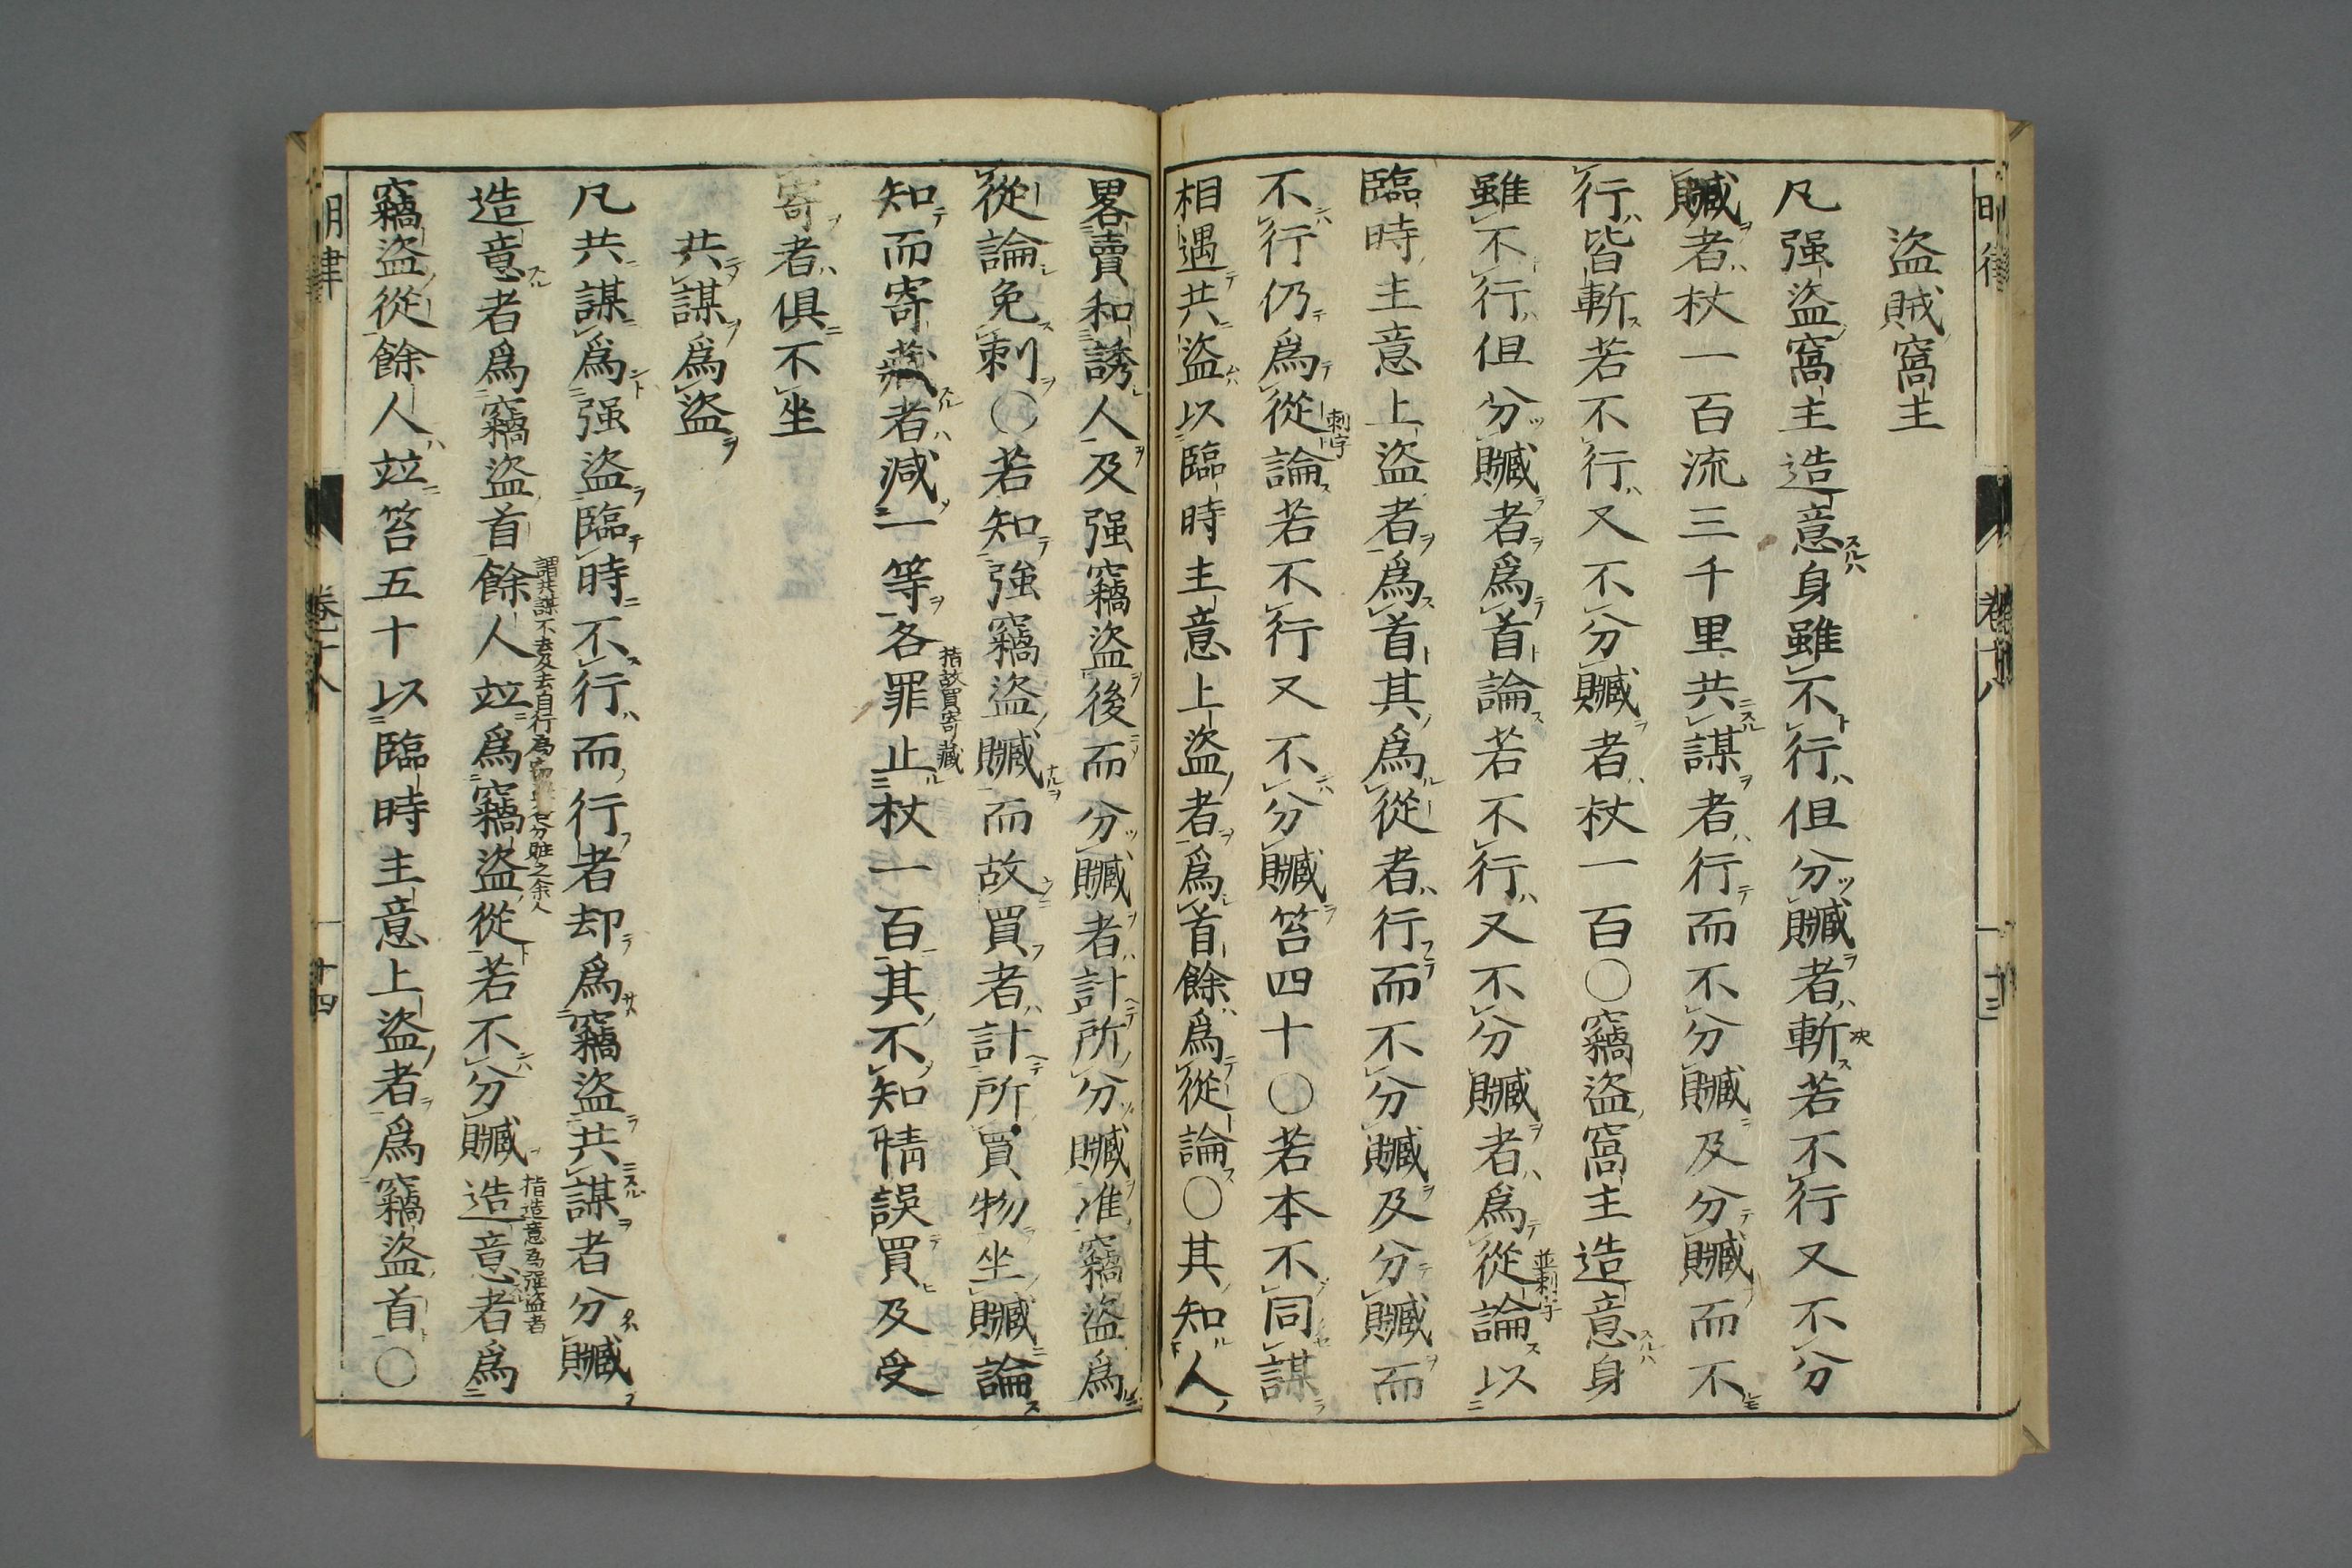 盜賊窩主
凡强盜窩主造意身雖不行但分贓者斬若不行又不分
贓者杖一百流三千里共謀者行而不分贓及分贓而不
行皆斬若不行又不分贓者杖一百〇竊盜窩主造意身
雖不行但分贓者爲首論若不行又不分贓者爲從論以
臨時主意上盜者爲首其爲從者行而不分贓及分贓而
不行仍爲從論若不行又不分贓笞四十〇若本不同謀
相遇共盜以臨時主意上盜者爲首餘爲從論〇其知人
畧賣和誘人及强竊盜後而分贓者計所分贓准竊盜爲
從論免刺〇若知強竊盜贓而故買者計所買物坐贓論
知而寄藏者減一等各罪止杖一百其不知情誤買及受
寄者俱不坐
共謀爲盜
凡共謀爲强盜臨時不行而行者却爲竊盜共謀者分贓
造意者爲竊盜首餘人竝爲竊盜從若不分贓造意者爲
竊盜從餘人竝笞五十以臨時主意上盜者爲竊盜首〇
明律 卷十八 十四